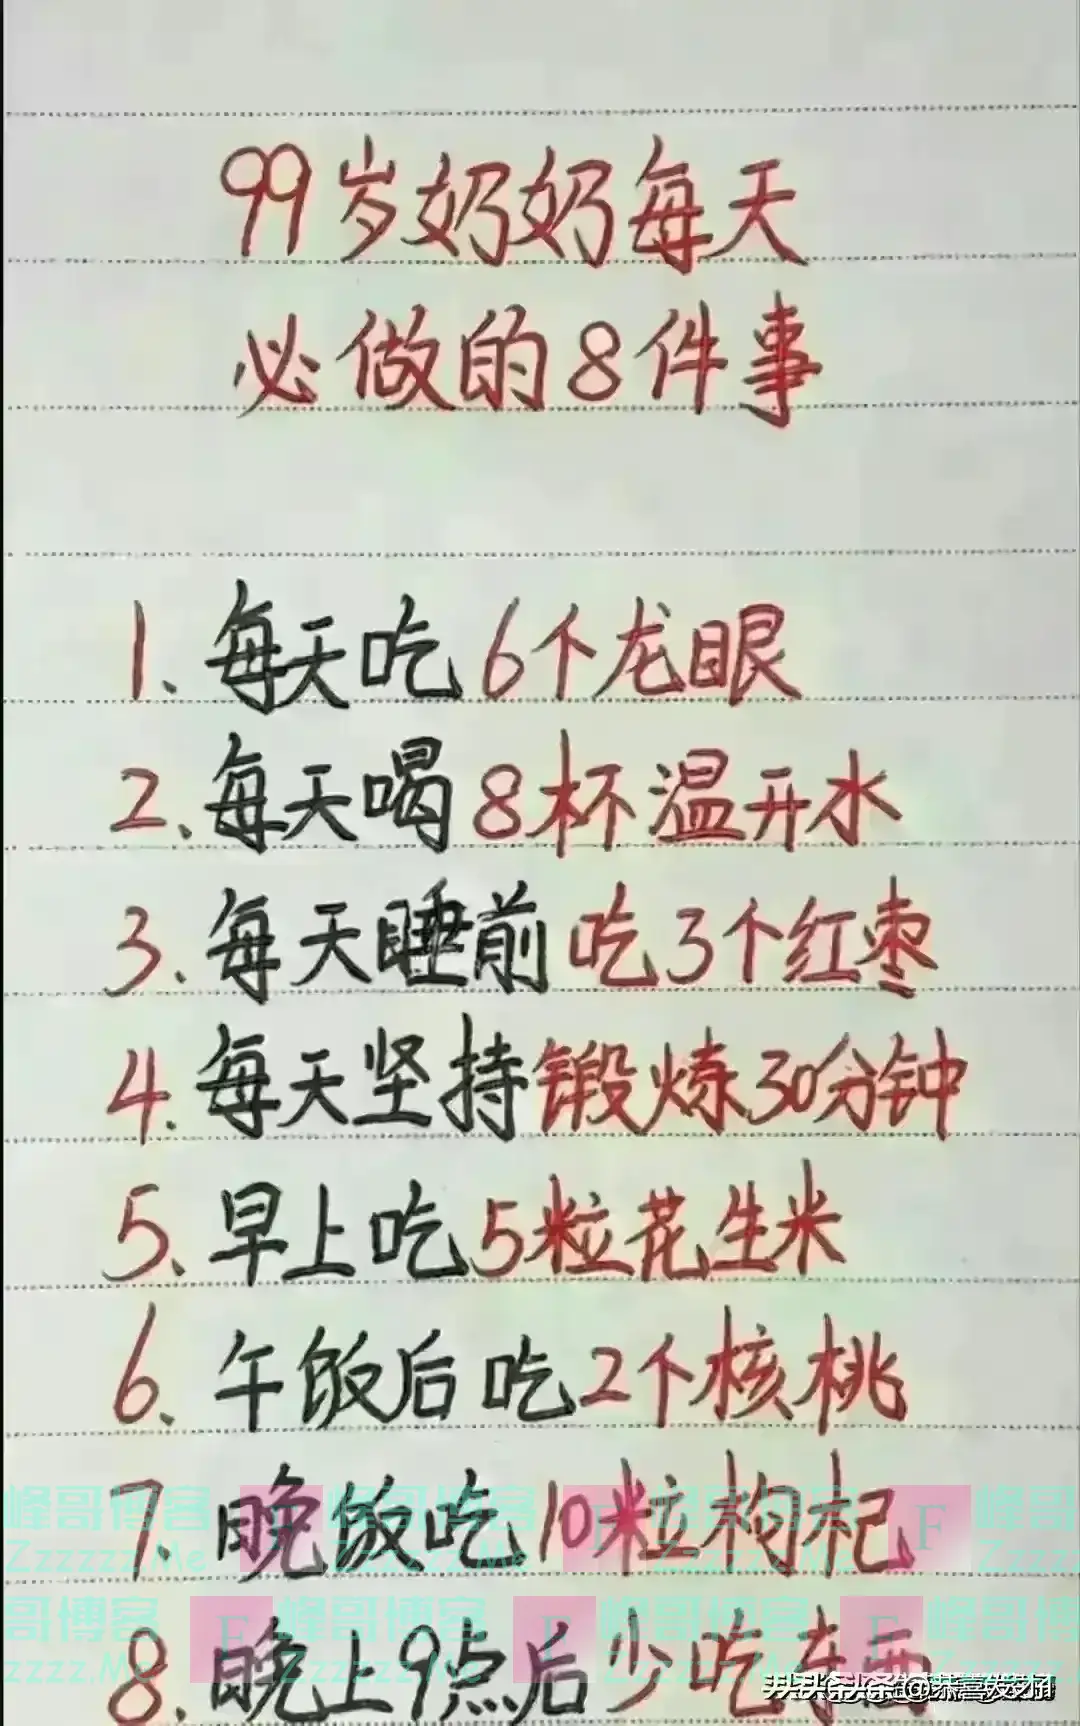 99岁奶奶每天
必做的8件事
1、每天吃6个龙眼
2、每天喝8杯温开水
3、每天睡前吃3个红枣
4、每天坚持锻炼30分钟
5、早上吃5粒花生米
6、午饭后吃2个核桃
7、晚饭吃10粒枸杞
峰哥博客 F 峰哥博客 F 峰哥博客 F 峰哥博客
Zzzzzz.Me Zzzzzz.Me Zzzzzz.Me Zzzzz
8、晚上9点后少吃东西
哥博客 F 峰哥博客 F 峰哥博客 F 峰哥博
zzzz.Me Zzzzzz.Me Zzzzzz.Me Zzzzzz